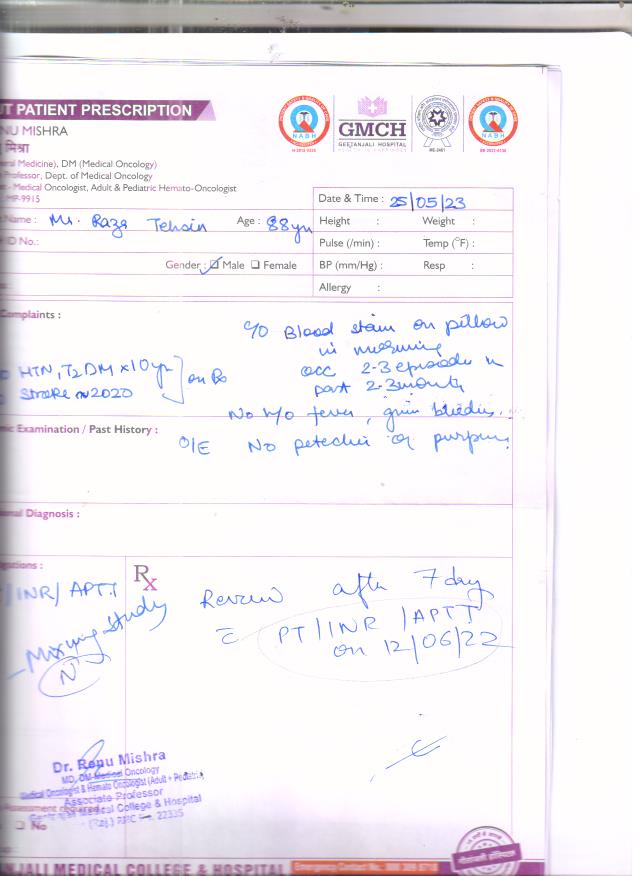 UT PATIENT PRESCRIPTION
NU MISHRA
मिश्रा
eral Medicine), DM (Medical Oncology)
Professor, Dept. of Medical Oncology
- Medical Oncologist, Adult & Pediatric Hemato-Oncologist
MP-9915
NABH
H-2012-0326
GMCH
GEETANJALI HOSPITAL
NABH
Date & Time : 25/05/23
Name : Mr. Raza Tehsin Age : 88yrs
Height : Weight :
ID No.:
Pulse (/min) : Temp (°F) :
Gender : ☑ Male ☐ Female
BP (mm/Hg) : Resp :
Allergy :
Complaints :
c/o Blood stain on pillow
in morning
occ 2-3 episode in
past 2-3 month
HTN, T2DM x10yr
Stroke ~2020
on Rx
No h/o fever, gum bleeding..
mic Examination / Past History :
O/E No petechie or purpura
onal Diagnosis :
tigations :
/INR/ APTT
Mixing study
N
Rx
Review after 7 day
c̄ PT/INR/APTT
on 12/06/22
Dr. Renu Mishra
MD, DM-Medical Oncology
Medical Oncologist & Hemato Oncologist (Adult + Pediatric)
Associate Professor
Medical College & Hospital
(Raj.) RMC 22335
Assessment required
☐ No
ANJALI MEDICAL COLLEGE & HOSPITAL
Emergency Contact No.